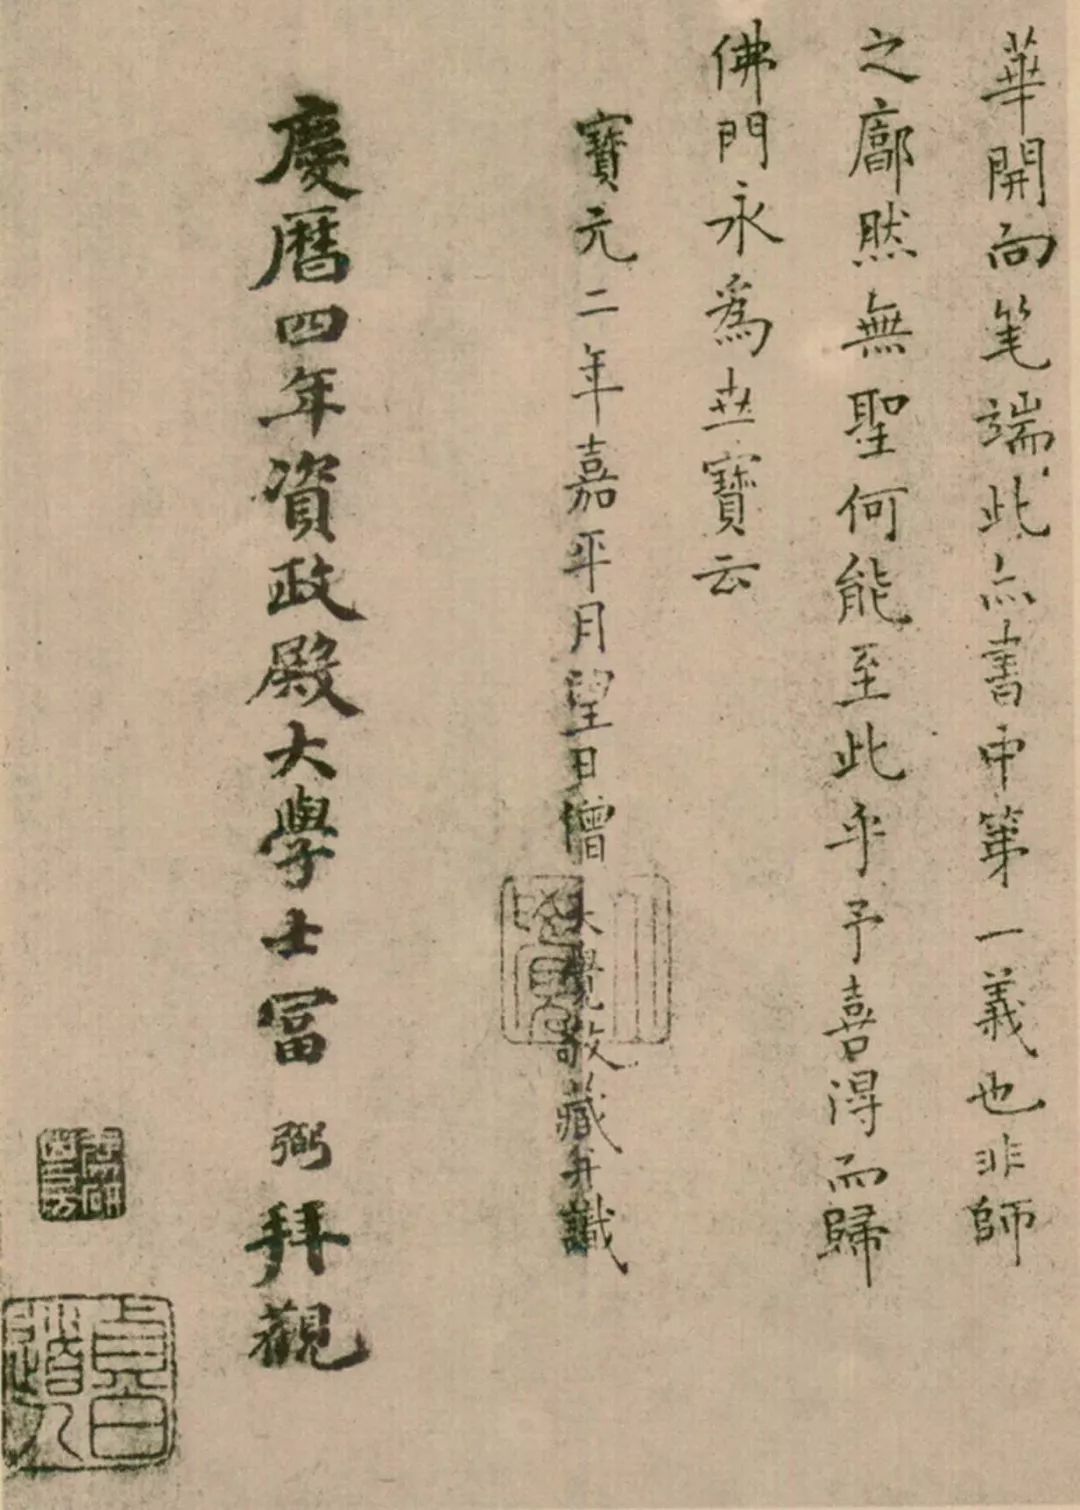 華開向笔端此亦書中第一義也非師
之廓然無聖何能至此乎予喜得而歸
佛門永為世寶云
寶元二年嘉平月望日僧大覺敬藏并識
慶曆四年資政殿大學士富弼拜觀